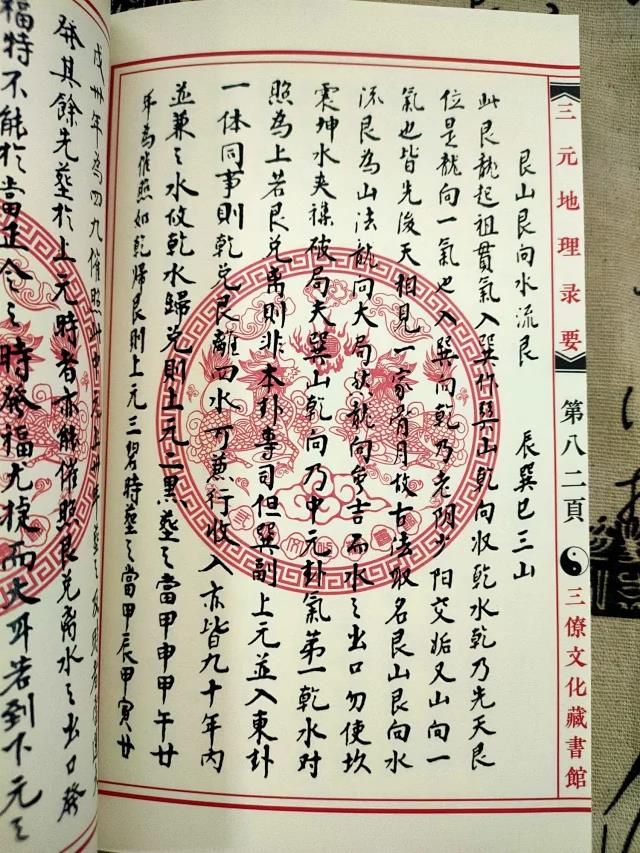 三元地理录要
第八二頁
三僚文化藏書館
艮山艮向水流艮 辰巽巳三山
此艮龍起祖貫氣入巽作巽山乾向收乾水乾乃先天艮
位是龍向一氣也入巽向乾乃老阴少阳交姤又山向一
氣也皆先後天相見一家骨月故古法取名艮山艮向水
流艮為山法龍向大局然龍向爭吉而水之出口勿使坎
震坤水夾襍破局夫巽山乾向乃中元卦氣第一乾水对
照為上若艮兑离則非本卦專司但巽副上元並入東卦
一体同事則乾兑艮離四水可兼行收入亦皆九十年內
並兼之水攸乾水歸兑則上元二黑塟之當甲申甲午廿
年為催照如乾歸艮則上元三碧時塟之當甲辰甲寅廿
戊 年為四九催照
發其餘先塟於上元時者亦能催照艮兑离水之出口發
福特不能於當正令之時發福尤捷而大耳若到下元之